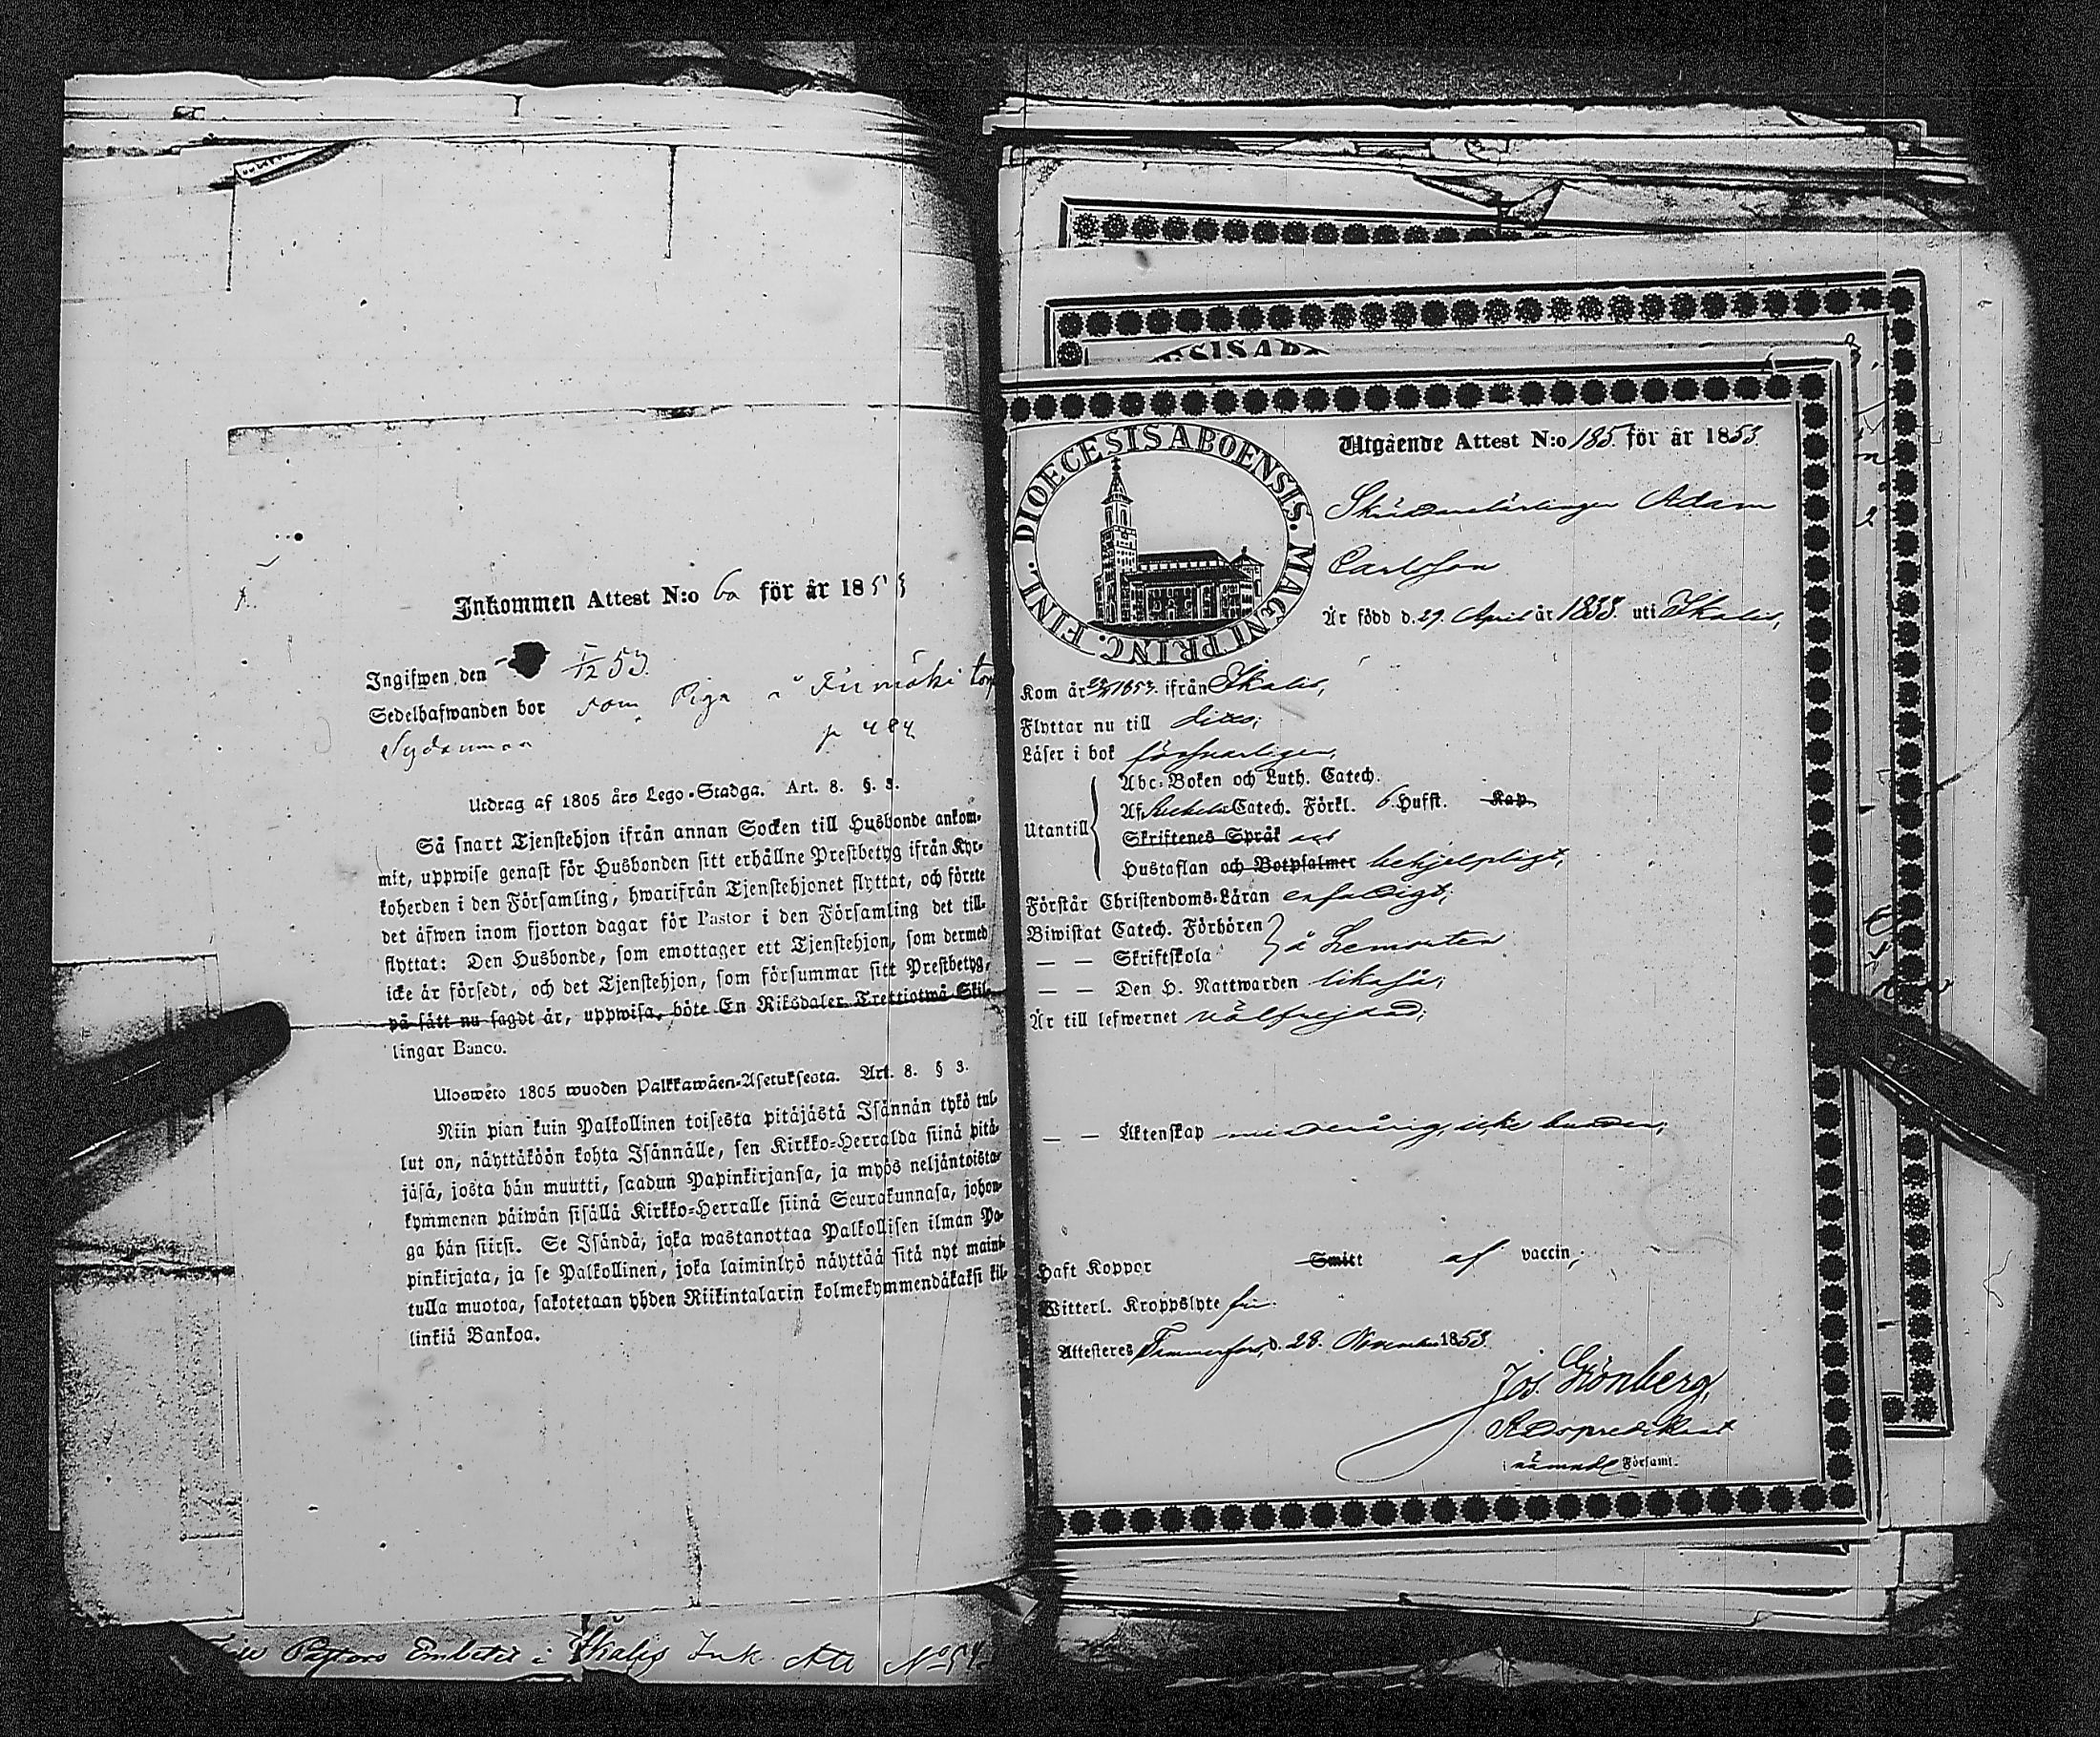 Inkommen Attest N:o 60 för år 1853
Ingifwen den 1/12 53.
Sedelhafwanden bor som Piga å torp
Sydänmaa p 484
Utdrag af 1805 års Lego-Stadga. Art. 8. §. 3.
Så snart Tjenstehjon ifrån annan Socken till Husbonde ankom-
mit, uppwise genast för Husbonden sitt erhållne Prestbetyg ifrån Kyr-
koherden i den Församling, hwarifrån Tjenstehjonet flyttat, och förete
det äfwen inom fjorton dagar för Pastor i den Församling det till-
flyttat: Den Husbonde, som emottager ett Tjenstehjon, som dermed
icke är försedt, och det Tjenstehjon, som försummar sitt Prestbetyg,
på sätt nu sagdt är, uppwisa, böte En Riksdaler Trettiotwå Skil-
lingar Banco.
Uloswéto 1805 wuoden Palkkawäen-Asetuksesta. Art. 8. § 3.
Niin pian kuin Palkollinen toisesta pitäjästä Isännän tykö tul-
lut on, näyttäköön kohta Isännälle, sen Kirkko-Herralda siinä pitä-
jäsä, josta hän muutti, saadun Papinkirjansa, ja myös neljäntoista-
kymmenen päiwän sisällä Kirkko-Herralle siinä Seurakunnasa, johon-
ga hän siirsi. Se Isändä, joka wastanottaa Palkollisen ilman Pa-
pinkirjata, ja se Palkollinen, joka laiminlyö näyttää sitä nyt maini-
tulla muotoa, sakotetaan yhden Riikintalarin kolmekymmendäkaksi kil-
linkiä Bankoa.
Pastors Embetet i Ikalis Ink. Att. No 54.
DIOECESIS ABOENSIS. MAGNI PRINC. FINL.
Utgående Attest N:o 185. för år 1853.
Skräddarelärlingen Adam
Carlsson
Är född d. 29. April år 1833. uti Ikalis,
Kom år 1853. ifrån Ikalis,
Flyttar nu till dito;
Läser i bok försvarligen,
Utantill
Abc-Boken och Luth. Catech.
Af Catech. Förkl. 6 Hufst. Kap.
Skriftenes Språk
Hustaflan och Botpsalmer behjelpligt,
Förstår Christendoms-Läran enfaldigt,
Biwistat Catech. Förhören
— — Skriftskola å hemorten
— — Den H. Nattwarden likaså;
Är till lefwernet välfrejdad;
— — Äktenskap minderårig, icke bunden;
Haft Koppor Smitt af vaccin,
Witterl. Kroppslyte fri.
Attesteres Tammerfors, d. 28. November 1853.
Jos. Grönberg,
i nämnde Förfaml.